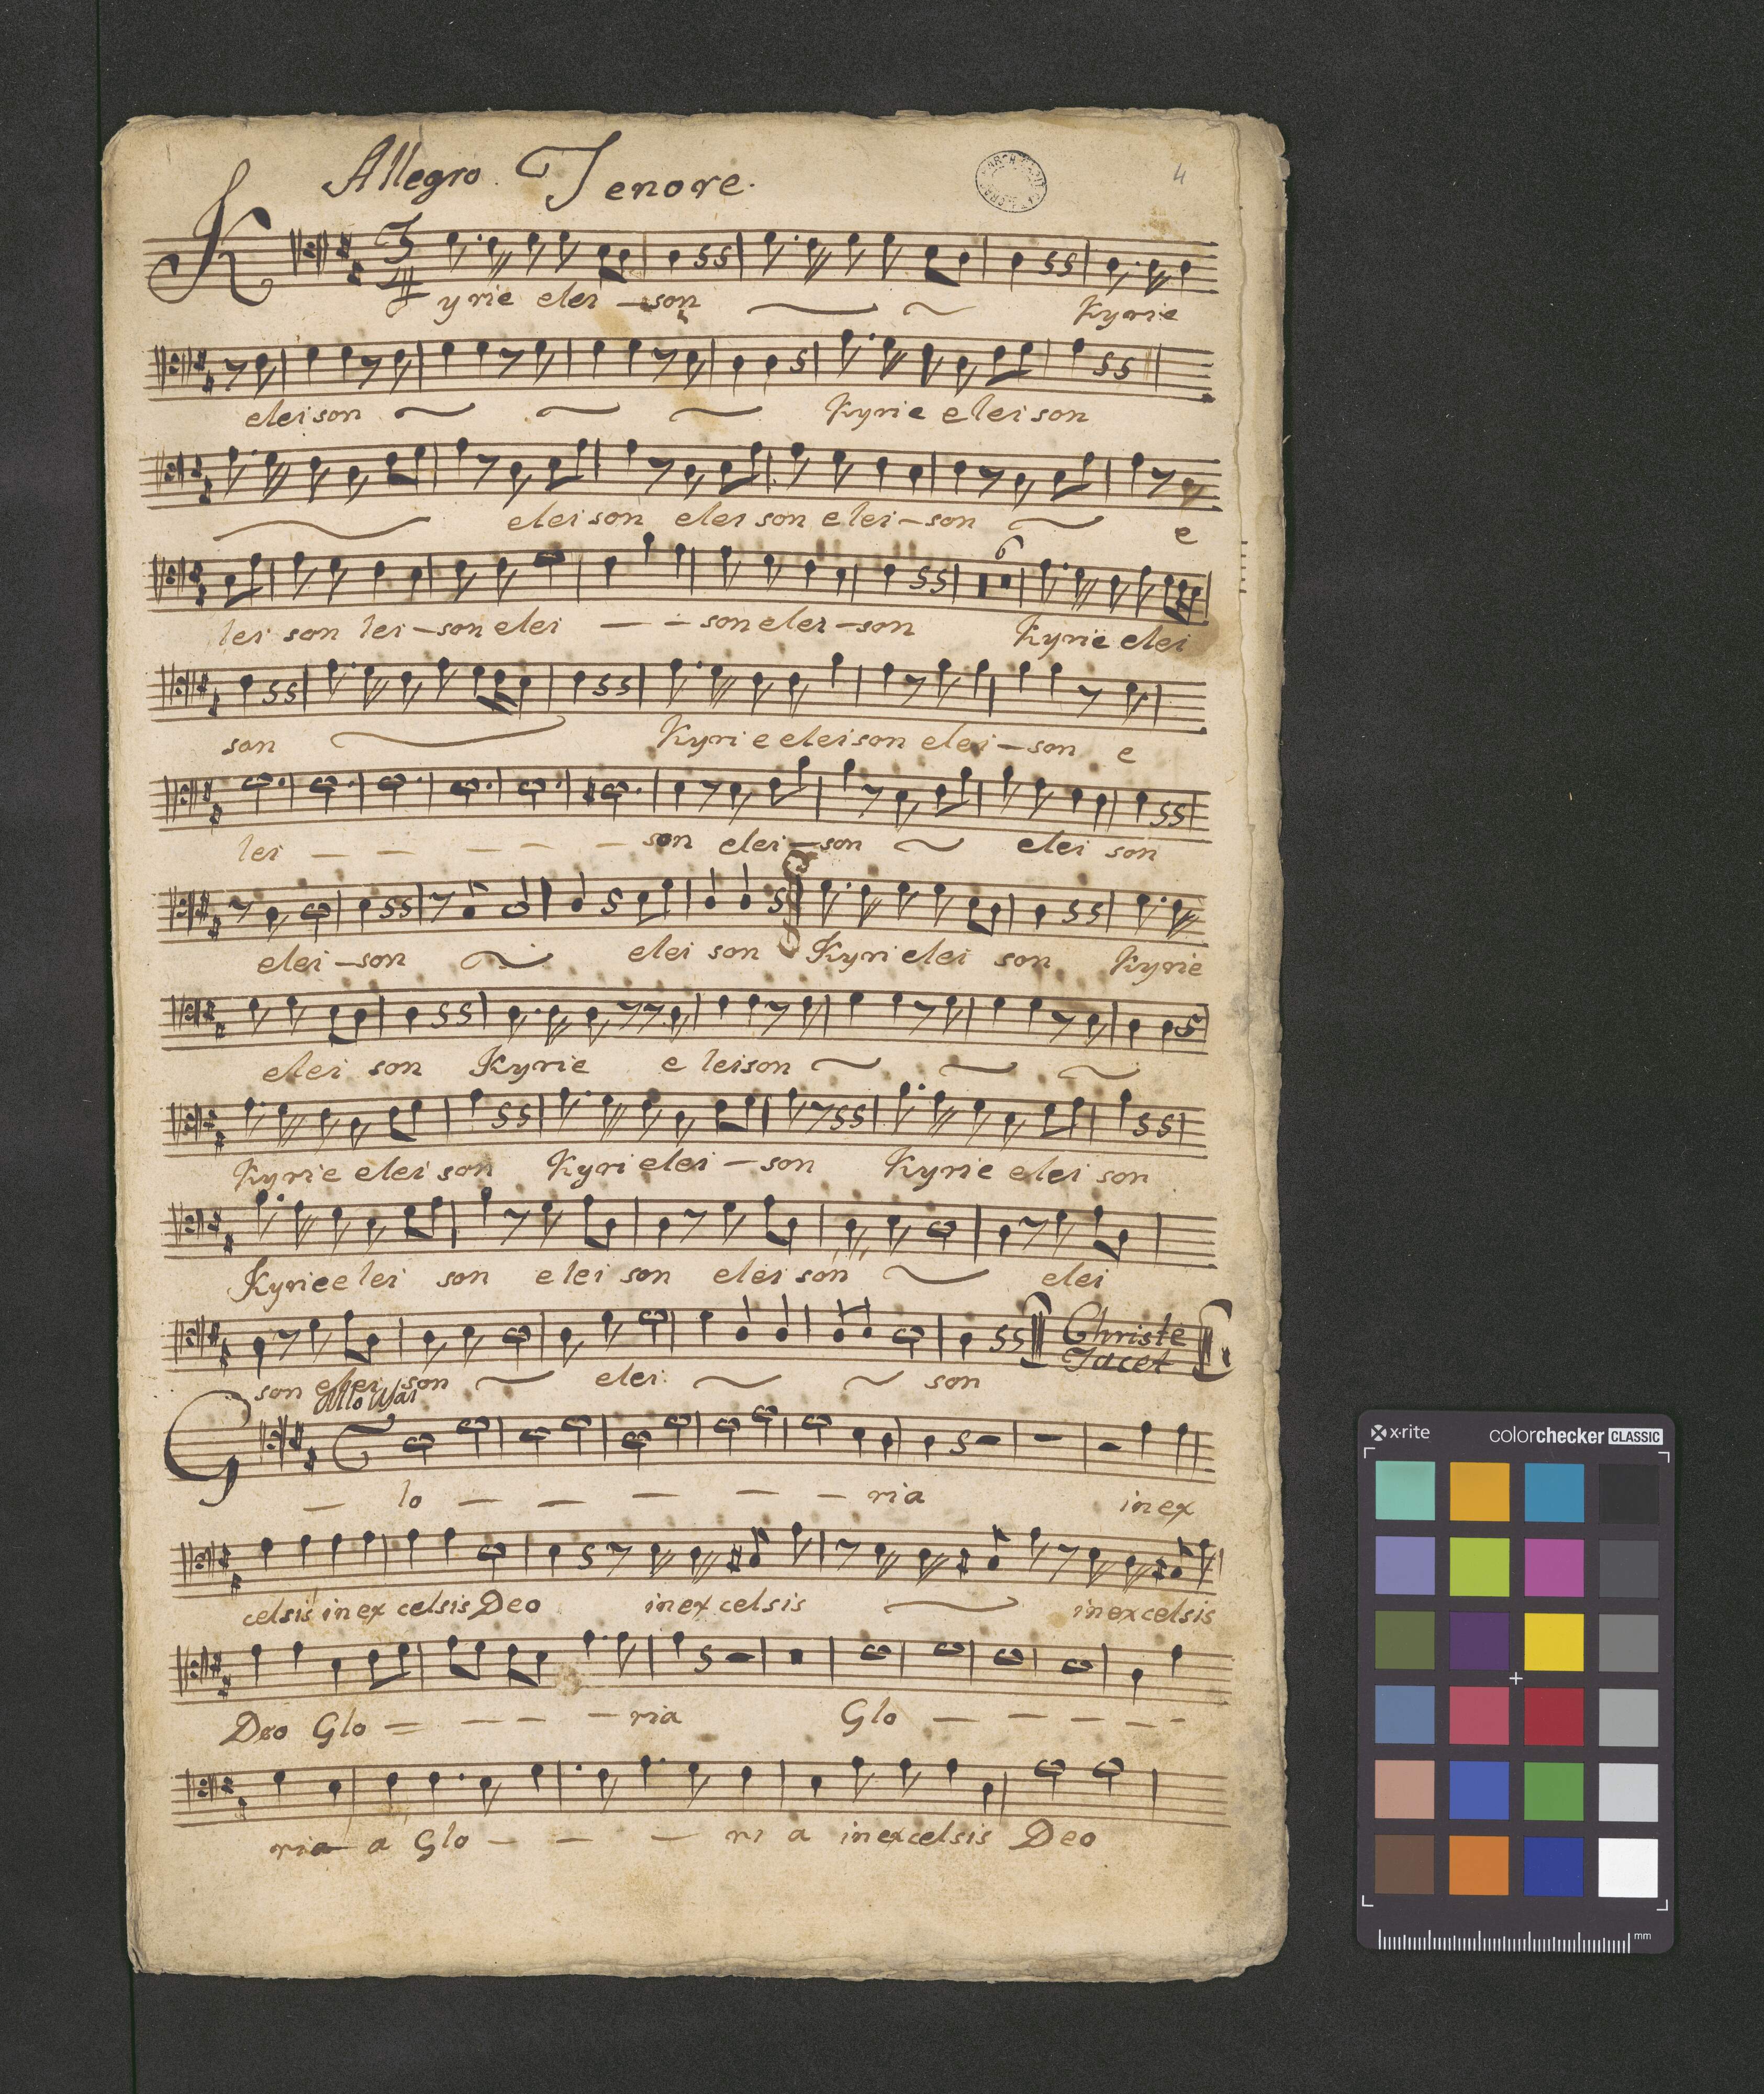 4
Allegro. Tenore.
3
4
Kyrie elei - son Kyrie
eleison Kyrie eleison
eleison elei son elei - son e
6
lei son lei - son elei - - son elei - son Kyrie elei
son Kyrie eleison elei - son e
lei - - - - - son elei - son elei son
elei - son elei son Kyri elei son Kyrie
elei son Kyrie e leison
Kyrie elei son Kyri elei - son Kyrie elei son
Kyrie elei son elei son elei son elei
Christe
Tacet
son elei son elei son
Glo - - - - - ria in ex
celsis in ex celsis Deo in ex celsis in excelsis
Deo Glo = - - - ria Glo - - - - -
ria a Glo - - - ri a in excelsis Deo
x·rite colorchecker CLASSIC
mm